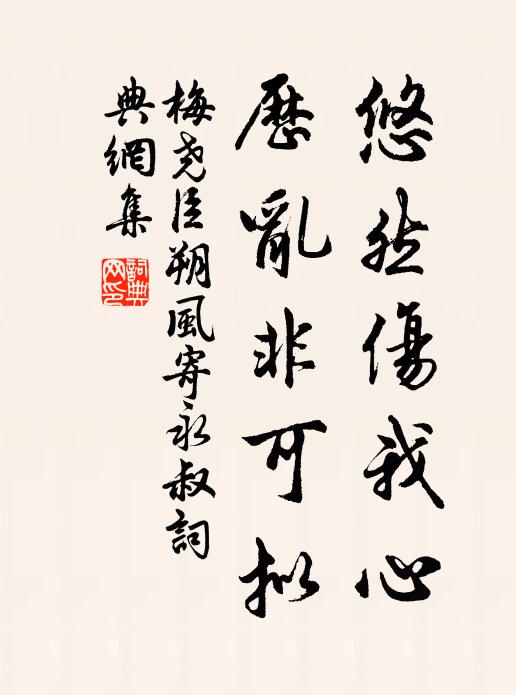 悠然傷我心
歷亂非可擬
梅堯臣朔風寄永叔詞
典網集
詞典
网印